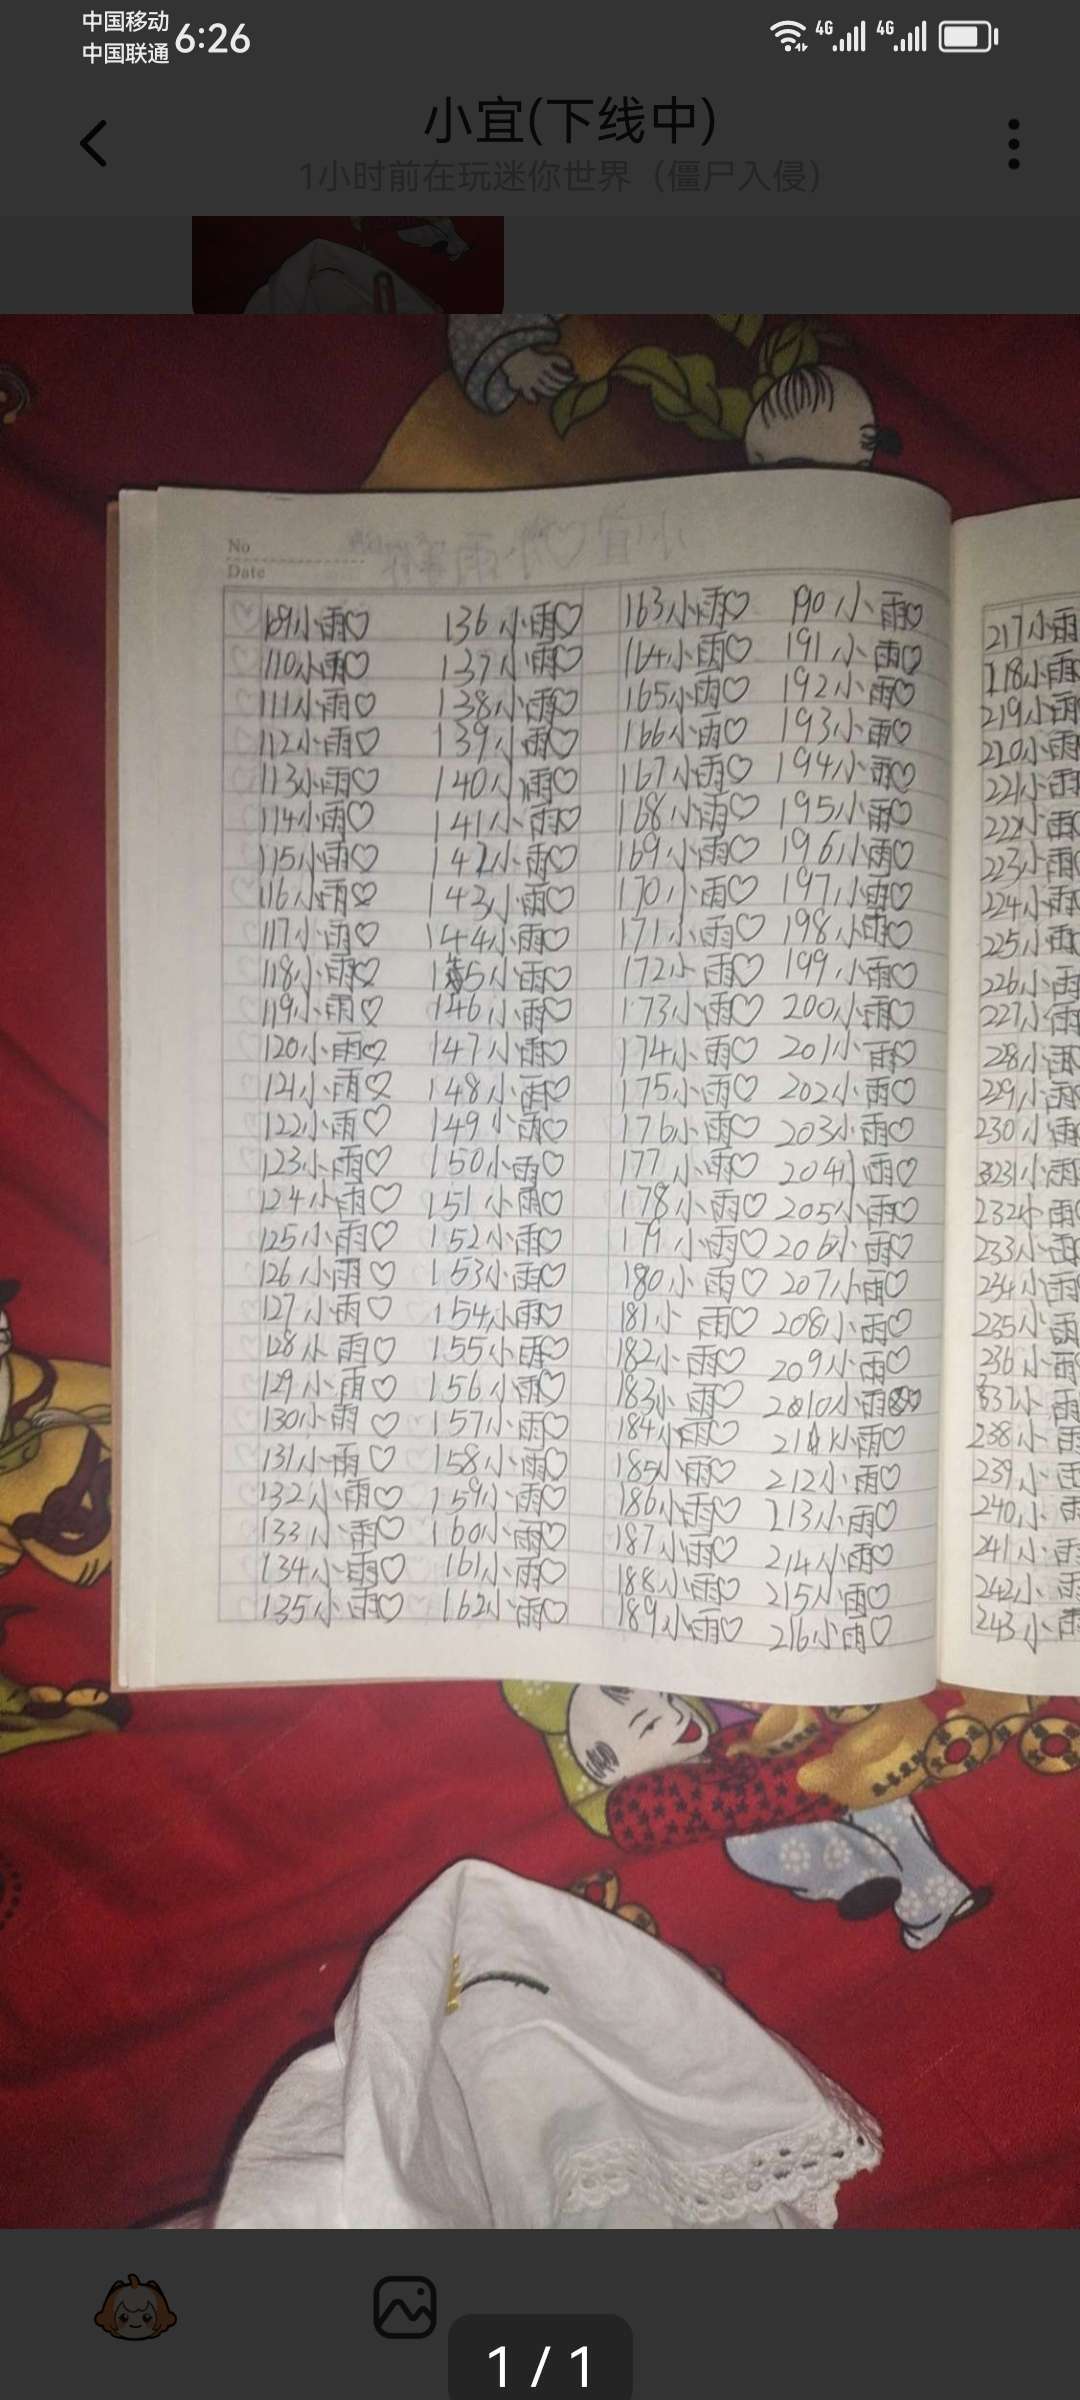 中国移动
中国联通
6:26
4G
4G
小宜(下线中)
1小时前在玩迷你世界（僵尸入侵）
No
Date
109小雨♡ 136小雨♡ 163小雨♡ 190小雨♡
110小雨♡ 137小雨♡ 164小雨♡ 191小雨♡
111小雨♡ 138小雨♡ 165小雨♡ 192小雨♡
112小雨♡ 139小雨♡ 166小雨♡ 193小雨♡
113小雨♡ 140小雨♡ 167小雨♡ 194小雨♡
114小雨♡ 141小雨♡ 168小雨♡ 195小雨♡
115小雨♡ 142小雨♡ 169小雨♡ 196小雨♡
116小雨♡ 143小雨♡ 170小雨♡ 197小雨♡
117小雨♡ 144小雨♡ 171小雨♡ 198小雨♡
118小雨♡ 145小雨♡ 172小雨♡ 199小雨♡
119小雨♡ 146小雨♡ 173小雨♡ 200小雨♡
120小雨♡ 147小雨♡ 174小雨♡ 201小雨♡
121小雨♡ 148小雨♡ 175小雨♡ 202小雨♡
122小雨♡ 149小雨♡ 176小雨♡ 203小雨♡
123小雨♡ 150小雨♡ 177小雨♡ 204小雨♡
124小雨♡ 151小雨♡ 178小雨♡ 205小雨♡
125小雨♡ 152小雨♡ 179小雨♡ 206小雨♡
126小雨♡ 153小雨♡ 180小雨♡ 207小雨♡
127小雨♡ 154小雨♡ 181小雨♡ 208小雨♡
128小雨♡ 155小雨♡ 182小雨♡ 209小雨♡
129小雨♡ 156小雨♡ 183小雨♡ 210小雨♡
130小雨♡ 157小雨♡ 184小雨♡ 211小雨♡
131小雨♡ 158小雨♡ 185小雨♡ 212小雨♡
132小雨♡ 159小雨♡ 186小雨♡ 213小雨♡
133小雨♡ 160小雨♡ 187小雨♡ 214小雨♡
134小雨♡ 161小雨♡ 188小雨♡ 215小雨♡
135小雨♡ 162小雨♡ 189小雨♡ 216小雨♡
217小雨
218小雨
219小雨
210小雨
221小雨
222小雨
223小雨
224小雨
225小雨
226小雨
227小雨
228小雨
229小雨
230小雨
231小雨
232小雨
233小雨
234小雨
235小雨
236小雨
237小雨
238小雨
239小雨
240小雨
241小雨
242小雨
243小雨
1 / 1